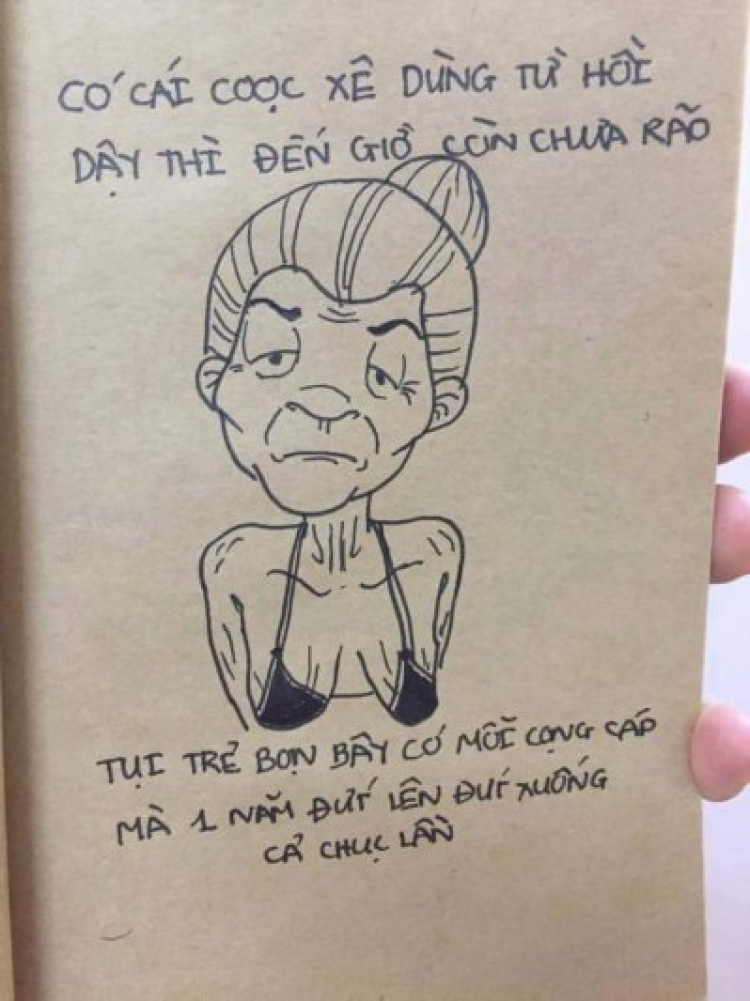 CÓ CÁI COỌC XÊ DÙNG TỪ HỒI
DẬY THÌ ĐẾN GIỜ CÒN CHƯA RÃO
TỤI TRẺ BỌN BÂY CÓ MỖI CỌNG CÁP
MÀ 1 NĂM ĐỨT LÊN ĐỨT XUỐNG
CẢ CHỤC LẦN